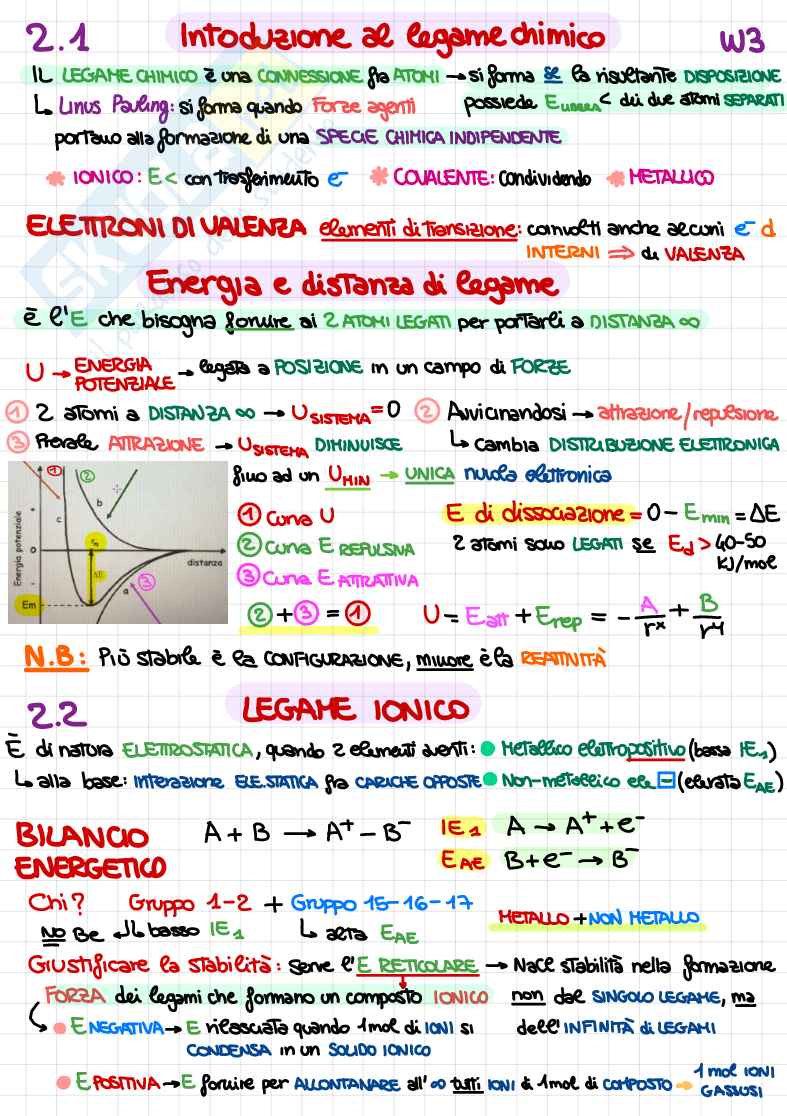 2.1 Intoduzione al legame chimico W3
IL LEGAME CHIMICO è una CONNESSIONE fra ATOMI → si forma se la risultante DISPOSIZIONE
possiede E LIBERA < dei due atomi SEPARATI
↳ Linus Pauling: si forma quando Forze agenti
portano alla formazione di una SPECIE CHIMICA INDIPENDENTE
* IONICO: E< con trasferimento e⁻ * COVALENTE: condividendo * METALLICO
ELETTRONI DI VALENZA elementi di transizione: coinvolti anche alcuni e⁻ d
INTERNI ⇒ di VALENZA
Energia e distanza di legame
è l'E che bisogna fornire ai 2 ATOMI LEGATI per portarli a DISTANZA ∞
U → ENERGIA POTENZIALE → legata a POSIZIONE in un campo di FORZE
① 2 atomi a DISTANZA ∞ → U SISTEMA = 0 ② Avvicinandosi → attrazione/repulsione
③ Prevale ATTRAZIONE → U SISTEMA DIMINUISCE ↳ cambia DISTRIBUZIONE ELETTRONICA
fino ad un U MIN → UNICA nuvola elettronica
① ②
b
c
+
0
-
Energia potenziale
r₀
ΔE
distanza
③
a
Em
① Curva U E di dissociazione = 0 - E min = ΔE
② Curva E REPULSIVA 2 atomi sono LEGATI se Ed > 40-50 KJ/mol
③ Curva E ATTRATTIVA
② + ③ = ① U = E att + E rep = - A/rˣ + B/rʸ
N.B: Più stabile è la CONFIGURAZIONE, minore è la REATTIVITÀ
2.2 LEGAME IONICO
È di natura ELETTROSTATICA, quando 2 elementi aventi: • Metallico elettropositivo (bassa IE₁)
↳ alla base: interazione ELE.STATICA fra CARICHE OPPOSTE • Non-metallico ele - (elevata E AE)
BILANCIO ENERGETICO A + B → A⁺ - B⁻
IE₁ A → A⁺ + e⁻
E AE B + e⁻ → B⁻
Chi? Gruppo 1-2 + Gruppo 15-16-17
NO Be ↲ ↳ basso IE₁ ↳ alta E AE METALLO + NON METALLO
Giustificare la stabilità: serve l'E RETICOLARE → NaCl stabilità nella formazione
FORZA dei legami che formano un composto IONICO non dal SINGOLO LEGAME, ma
• E NEGATIVA → E rilasciata quando 1 mol di IONI si dell'INFINITÀ di LEGAMI
CONDENSA in un SOLIDO IONICO
• E POSITIVA → E fornire per ALLONTANARE all'∞ tutti IONI di 1 mol di COMPOSTO → 1 mol IONI GASSOSI